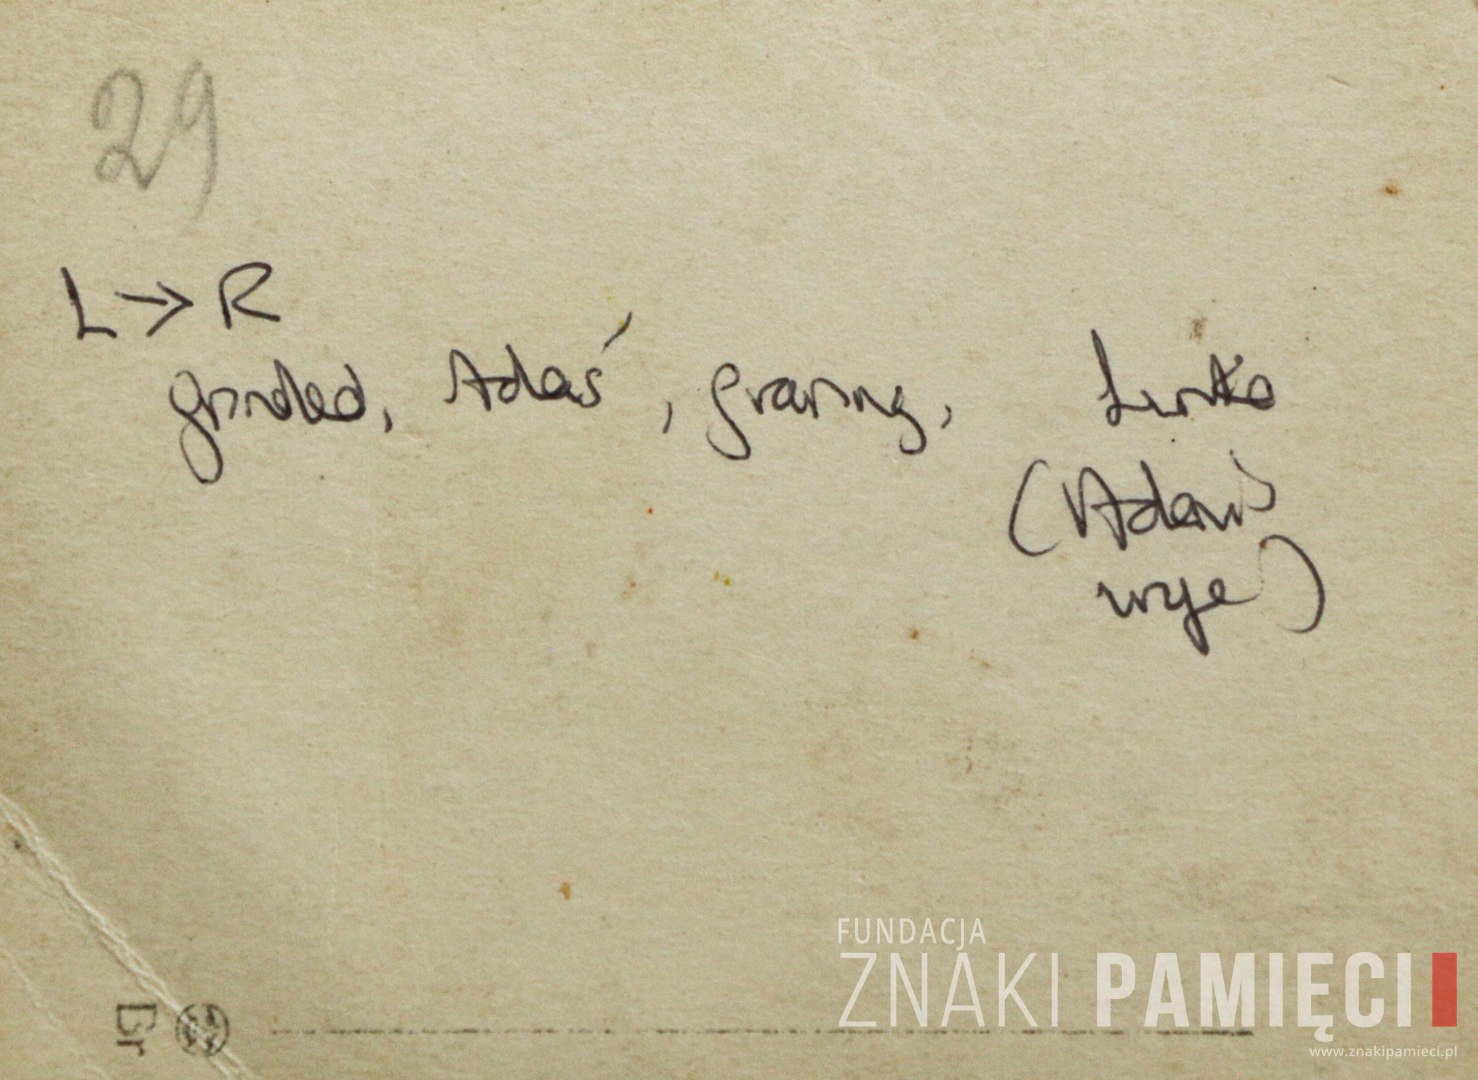 29
L → R
grandad, Adaś, granny, Linka
(Adam's
wife)
Gr
FUNDACJA
ZNAKI PAMIĘCI
www.znakipamieci.pl